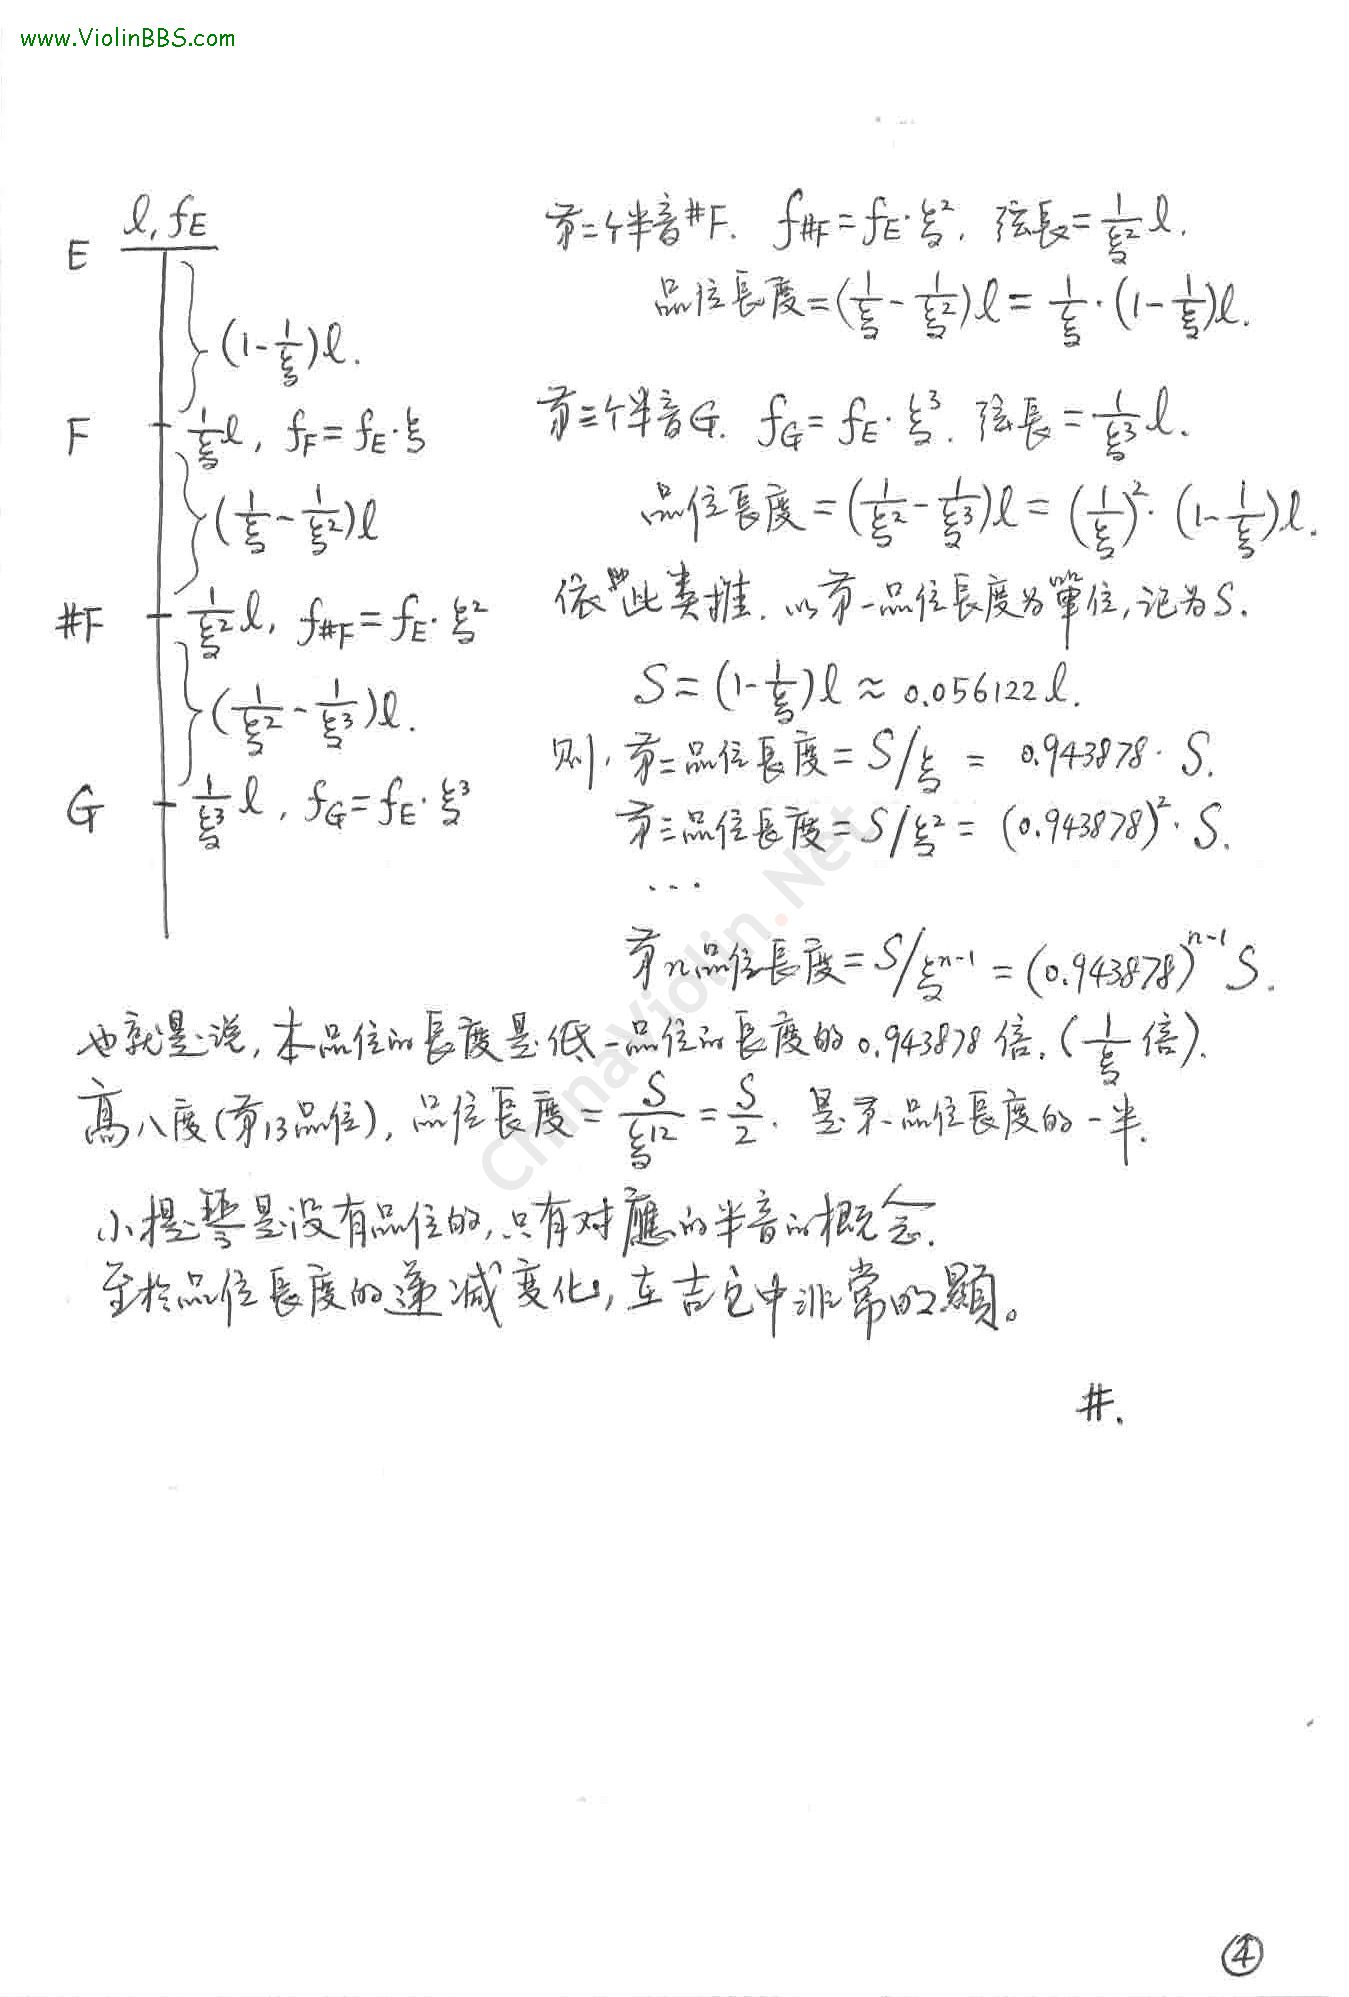 www.ViolinBBS.com
E l, fE
(1-1/ξ)l.
F 1/ξ l, fF=fE·ξ
(1/ξ-1/ξ²)l
#F 1/ξ² l, f#F=fE·ξ²
(1/ξ²-1/ξ³)l.
G 1/ξ³ l, fG=fE·ξ³
第二个半音#F. f#F=fE·ξ², 弦長=1/ξ² l.
品位長度=(1/ξ-1/ξ²)l=1/ξ·(1-1/ξ)l.
第三个半音G. fG=fE·ξ³. 弦長=1/ξ³ l.
品位長度=(1/ξ²-1/ξ³)l=(1/ξ)²·(1-1/ξ)l.
依此类推. 以第一品位長度为單位, 记为S.
S=(1-1/ξ)l≈0.056122l.
则, 第二品位長度=S/ξ = 0.943878·S.
第三品位長度=S/ξ²=(0.943878)²·S.
...
第n品位長度=S/ξⁿ⁻¹=(0.943878)ⁿ⁻¹S.
也就是说, 本品位的長度是低一品位的長度的0.943878倍. (1/ξ倍).
高八度(第13品位), 品位長度=S/ξ¹²=S/2. 是第一品位長度的一半.
小提琴是没有品位的, 只有对應的半音的概念.
至於品位長度的递减变化, 在吉它中非常明顯。
#.
④
ChinaViolin.Net